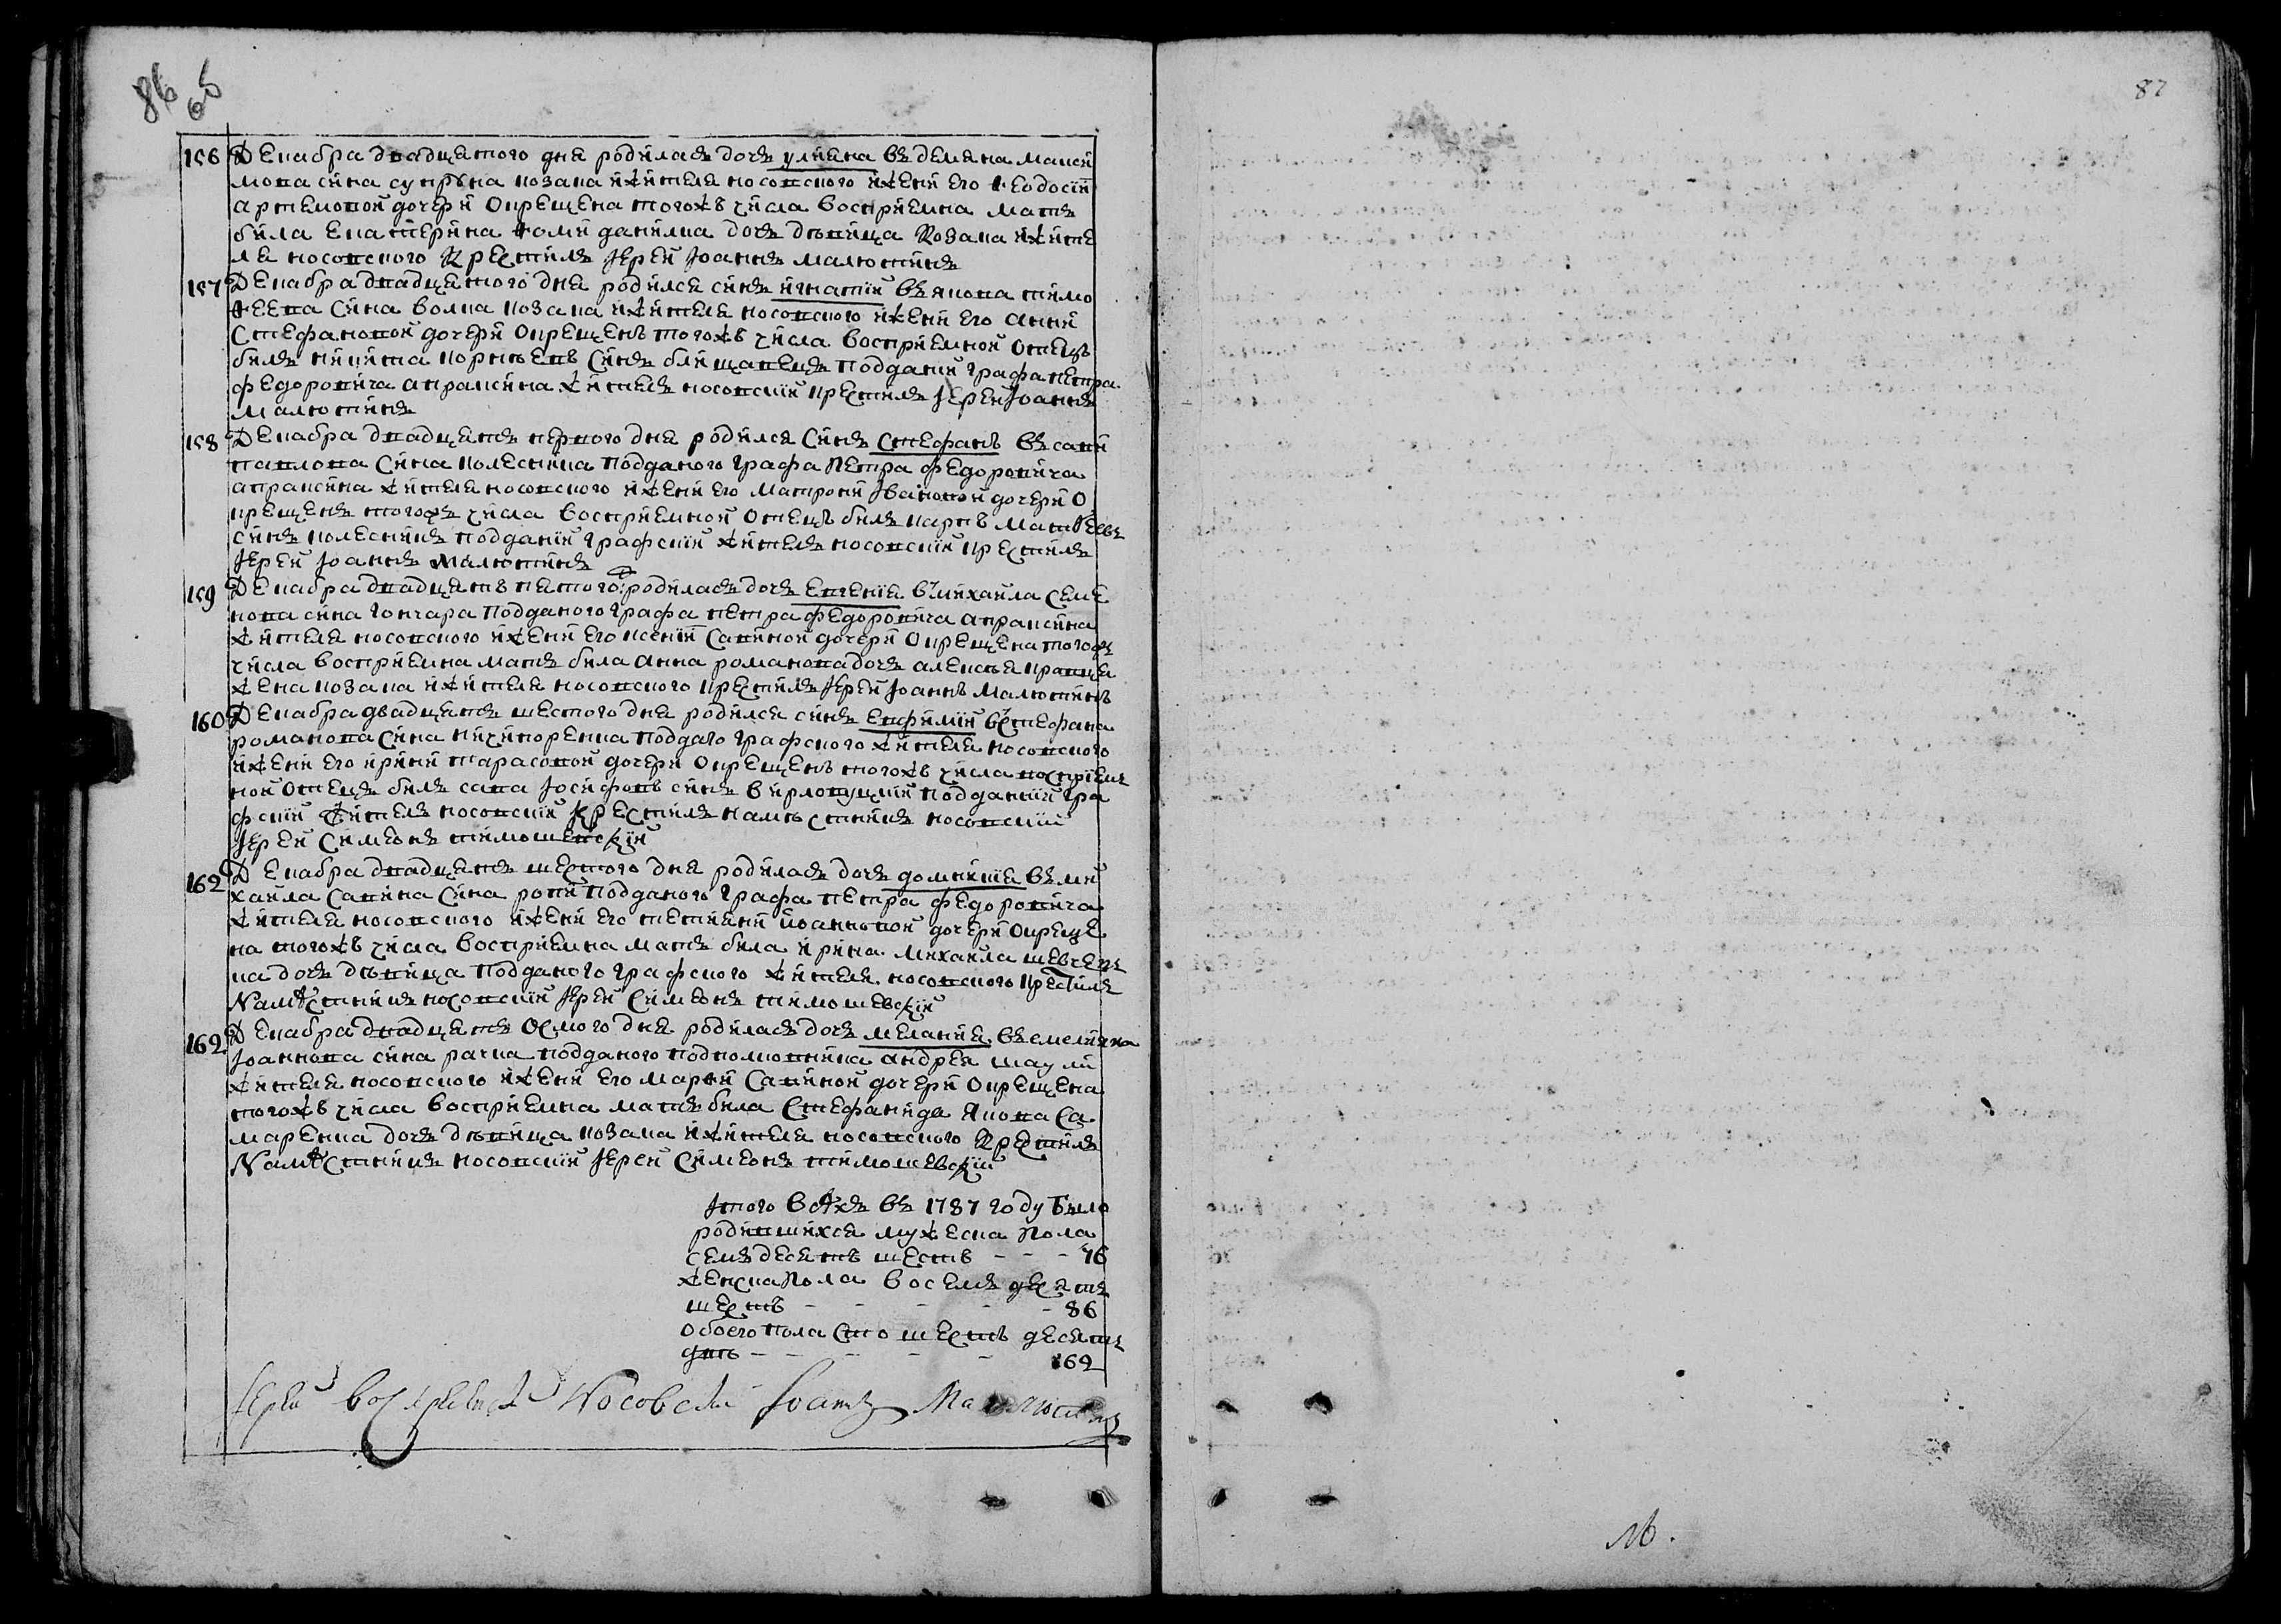 86 об
87
156 Декабра двадцятого дня родилася дочь улияна въ демяна макси
мова сина супруна козака и жителя носовского и жени его феодосіи
артемовой дочери окрещена тогожъ числа восприемна мать
била екатерина фоми данилка дочь дѣвица козака и жите
ля носовского крестилъ іерей Іоаннъ малютинъ
157 Декабра двадцятого дня родился синъ игнатій въ якова тимо
феева сина волка козака и жителя носовского и жени его анни
стефановой дочери окрещенъ тогожъ числа восприемной отецъ
билъ никита корнѣевъ синъ близнавецъ подданій графа петра
федоровича апраксина житель носовскій крестилъ іерей Іоаннъ
малютинъ
158 Декабра двадцять первого дня родился синъ стефанъ въ сави
павлова сина колесника подданого графа петра федоровича
апраксина жителя носовского и жени его матрони Івановой дочери о
крещенъ тогожъ числа восприемной отецъ билъ карпъ матвѣевъ
синъ колесникъ подданій графскій житель носовскій крестилъ
іерей Іоаннъ малютинъ
159 Декабра двадцять пятого родилася дочь евгенія в михаила семе
нова сина гончара подданого графа петра федоровича апраксина
жителя носовского и жени его ксеніи савиной дочери окрещена тогожъ
числа восприемна мать била анна романова дочь алексѣя кравця
жена козака и жителя носовского крестилъ іерей Іоаннъ малютинъ
160 Декабра двадцять шестого дня родился синъ евфимій в стефана
романова сина ничипоренка подданого графского жителя носовского
и жени его ирини тарасовой дочери окрещенъ тогожъ числа восприем
ной отецъ билъ сава Іосифовъ синъ вирловуцкій подданій гра
фскій житель носовскій крестилъ намѣстникъ носовскій
іерей симеонъ тимошевскій
162 Декабра двадцять шестого дня родилася дочь домникія въ ми
хаила савина сина подданого графа петра федоровича
жителя носовского и жени его тетияни иоанновой дочери окреще
на тогожъ числа восприемна мать била ирина михаила шевчен
ка дочь дѣвица подданого графского жителя носовского крестилъ
намѣстникъ носовскій іерей симеонъ тимошевскій
162 Декабра двадцять осмого дня родилася дочь меланія въ емелияна
Іоаннова сина рачка подданого подполковника андрея
жителя носовского и жени его марфи савиной дочери окрещена
тогожъ числа восприемна мать била стефанида якова са
маренка дочь дѣвица козака и жителя носовского крестилъ
намѣстникъ носовскій іерей симеонъ тимошевскій
Ітого всѣхъ въ 1787 году било
родившихся мужеска пола
семъдесятъ шесть - - - 76
женска пола восемъ десятъ
шесть - - - - - 86
обоего пола сто шесть десятъ
два - - - - - 162
Іерей воскресенскій Носовскій Іоаннъ Малютинъ